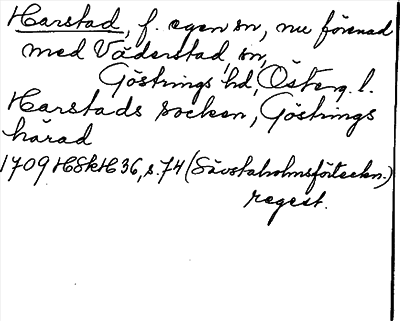 Harstad, f. egen sn, nu förenad
med Väderstad sn,
Göstrings hd, Österg. l.
Harstads socken, Göstrings
härad
1709 HSkH 36, s. 74 (Sävstaholmsförteckn.)
regest.